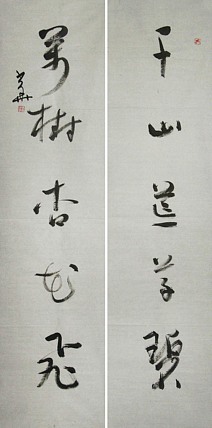 千山蕙草碧
萬樹杏花飛